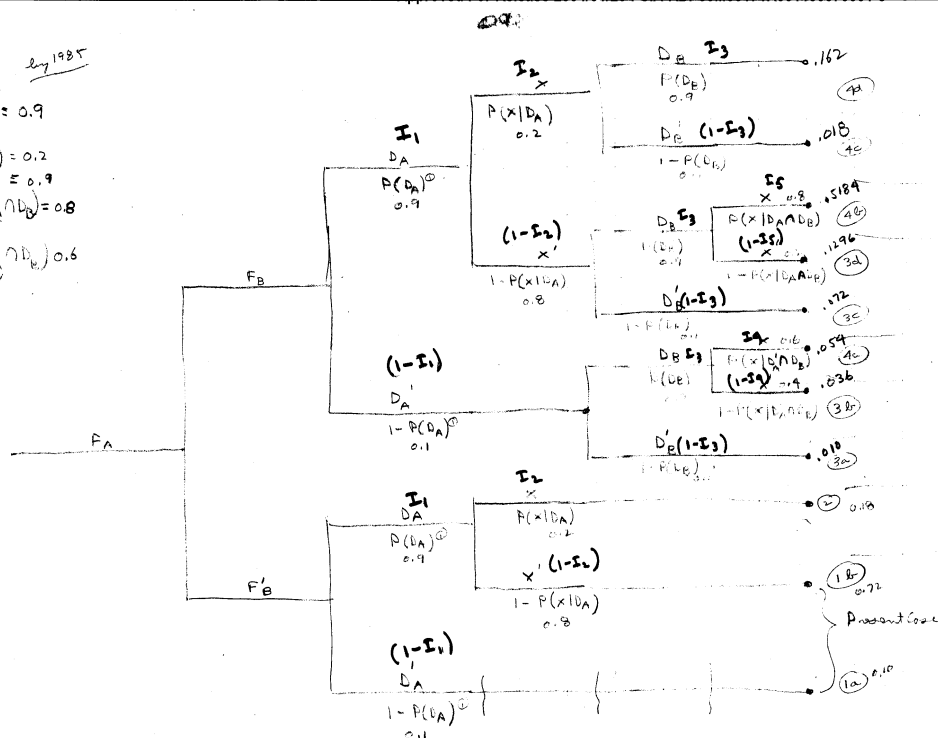 by 1985
= 0.9
) = 0.2
= 0.9
∩D_B) = 0.8
∩D_B) 0.6
F_A
F_B
F'_B
I_1
D_A
P(D_A)①
0.9
(1-I_1)
D_A'
1-P(D_A)①
0.1
I_2
x
P(x|D_A)
0.2
(1-I_2)
x'
1-P(x|D_A)
0.8
D_B I_3
P(D_B)
0.9
.162
4d
D_B' (1-I_3)
1-P(D_B)
.018
4c
D_B I_3
I_5
x 0.8
.5184
P(x|D_A∩D_B)
4b
(1-I_5)
x
.1296
1-P(x|D_A∩D_B)
3d
D'_B (1-I_3)
.072
3c
D_B I_3
I_4
x 0.6
.054
P(x|D'_A∩D_B)
4a
(1-I_4) .4
.036
3b
D'_B (1-I_3)
.010
3a
I_1
D_A
P(D_A)①
0.9
I_2
x
P(x|D_A)
0.2
② 0.18
x' (1-I_2)
1-P(x|D_A)
0.8
1b
0.72
Present Case
(1-I_1)
D_A'
1-P(D_A)①
1a 0.10